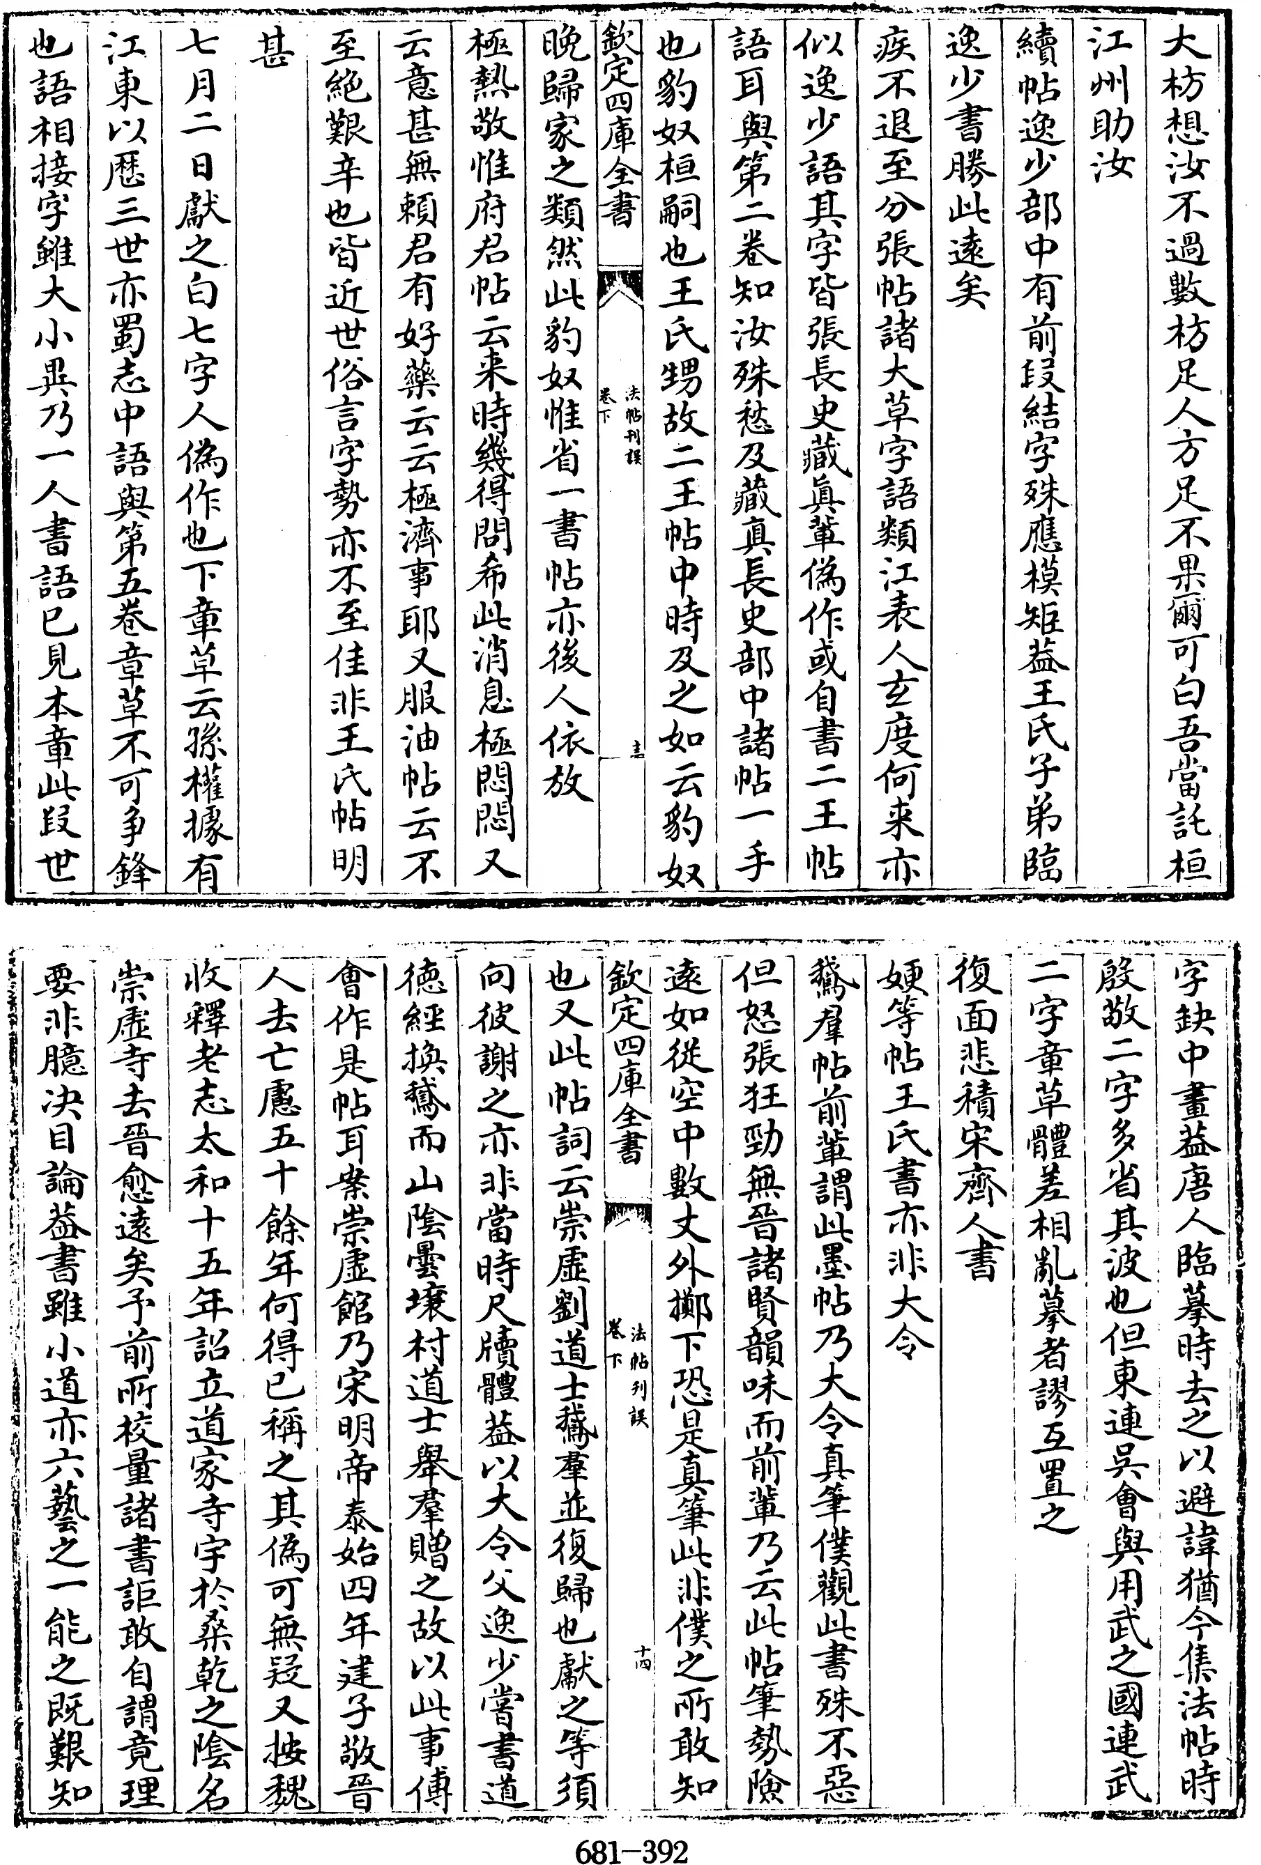 大枋想汝不過數枋足人方足不果爾可白吾當託桓
江州助汝
續帖逸少部中有前段結字殊應模矩葢王氏子弟臨
逸少書勝此逺矣
疾不退至分張帖諸大草字語類江表人玄度何来亦
似逸少語其字皆張長史藏眞軰偽作或自書二王帖
語耳與第二巻知汝殊愁及藏真長史部中諸帖一手
也豹奴桓嗣也王氏甥故二王帖中時及之如云豹奴
欽定四庫全書
法帖刋誤
卷下
十三
晩歸家之類然此豹奴惟省一書帖亦後人依放
極熱敬惟府君帖云来時幾得問希此消息極悶悶又
云意甚無頼君有好藥云云極濟事耶又服油帖云不
至絶艱辛也皆近世俗言字勢亦不至佳非王氏帖明
甚
七月二日獻之白七字人偽作也下章草云孫權據有
江東以歴三世亦蜀志中語與第五巻章草不可争鋒
也語相接字雖大小異乃一人書語已見本章此段世
字缺中畫葢唐人臨摹時去之以避諱猶今集法帖時
殷敬二字多省其波也但東連吳會與用武之國連武
二字章草體差相亂摹者謬互置之
復面悲積宋齊人書
姨等帖王氏書亦非大令
鵞羣帖前軰謂此墨帖乃大令真筆僕觀此書殊不惡
但怒張狂勁無晉諸賢韻味而前軰乃云此帖筆勢險
逺如從空中數丈外擲下恐是真筆此非僕之所敢知
欽定四庫全書
法帖刋誤
卷下
十四
也又此帖詞云崇虚劉道士鵞羣並復歸也獻之等須
向彼謝之亦非當時尺牘體葢以大令父逸少嘗書道
徳經換鵞而山隂曇壤村道士舉羣贈之故以此事傅
會作是帖耳案崇虚館乃宋明帝泰始四年建子敬晉
人去亡慮五十餘年何得已稱之其偽可無疑又按魏
收釋老志太和十五年詔立道家寺宇於桑乾之隂名
崇虚寺去晉愈逺矣予前所校量諸書詎敢自謂竟理
要非臆决目論葢書雖小道亦六藝之一能之既艱知
681-392